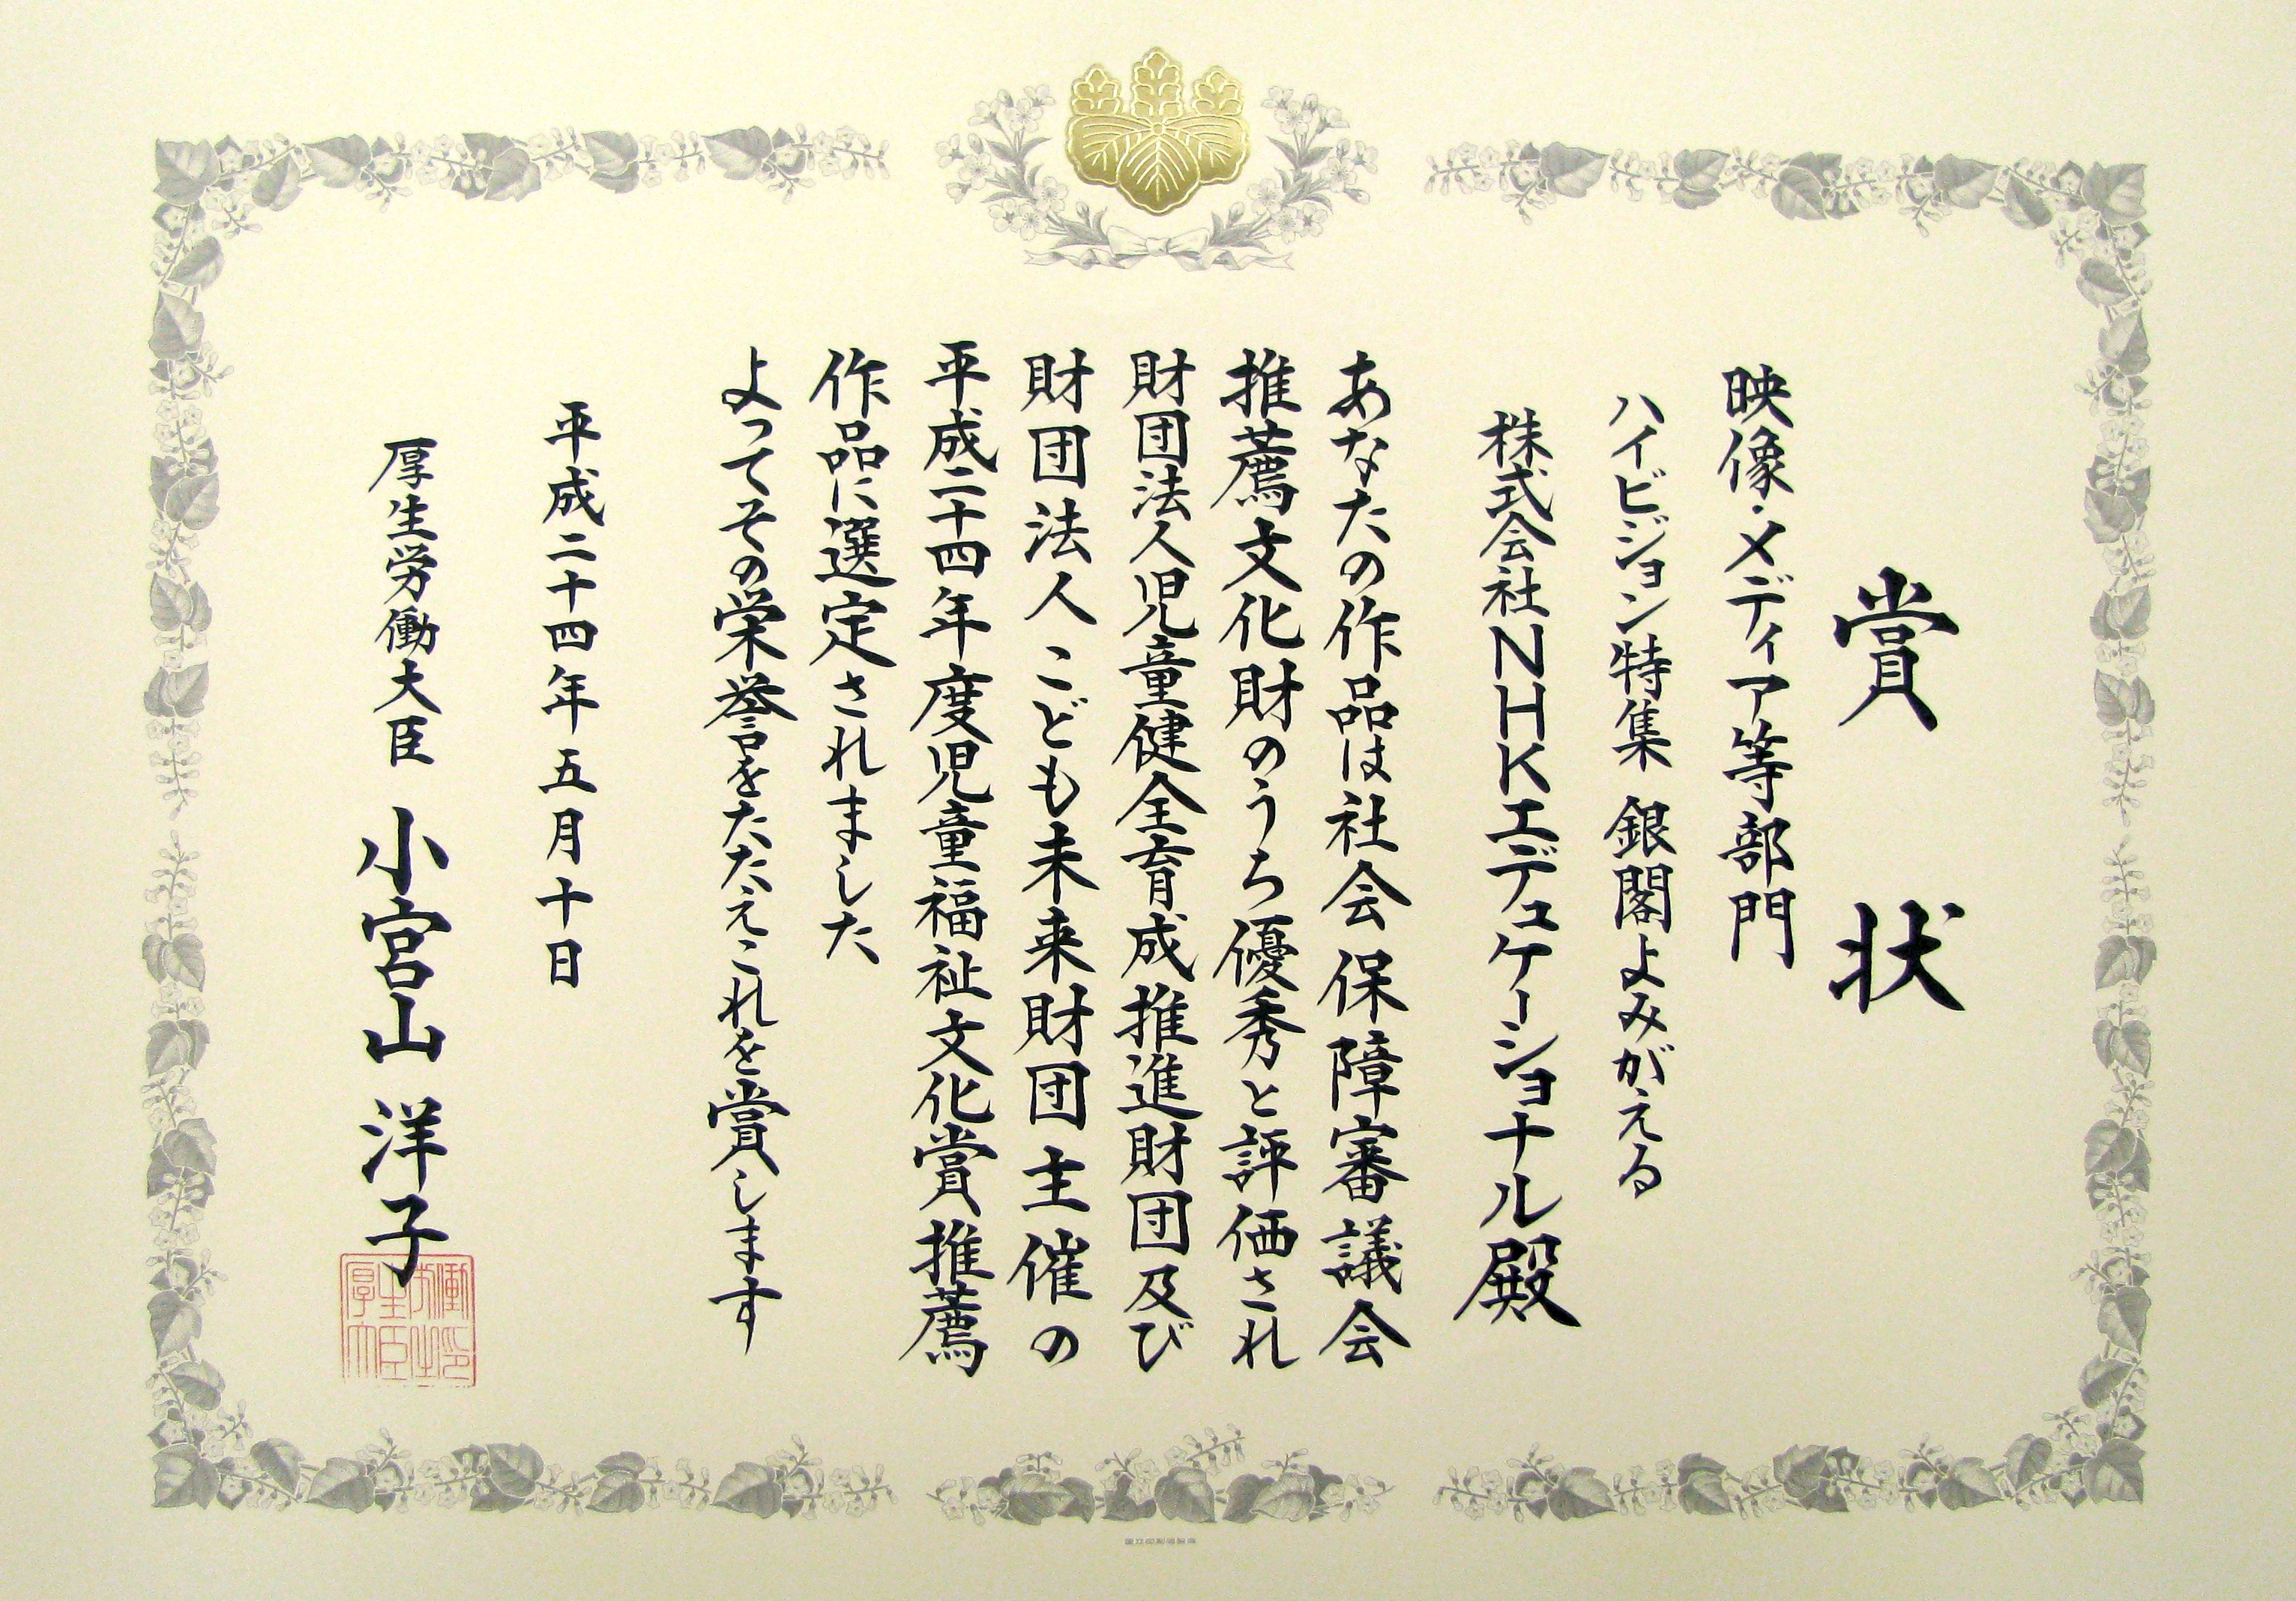 賞状
映像・メディア等部門
ハイビジョン特集 銀閣よみがえる
株式会社NHKエデュケーショナル殿
あなたの作品は社会保障審議会
推薦文化財のうち優秀と評価され
財団法人児童健全育成推進財団及び
財団法人こども未来財団主催の
平成二十四年度児童福祉文化賞推薦
作品に選定されました
よってその栄誉をたたえこれを賞します
平成二十四年五月十日
厚生労働大臣 小宮山 洋子